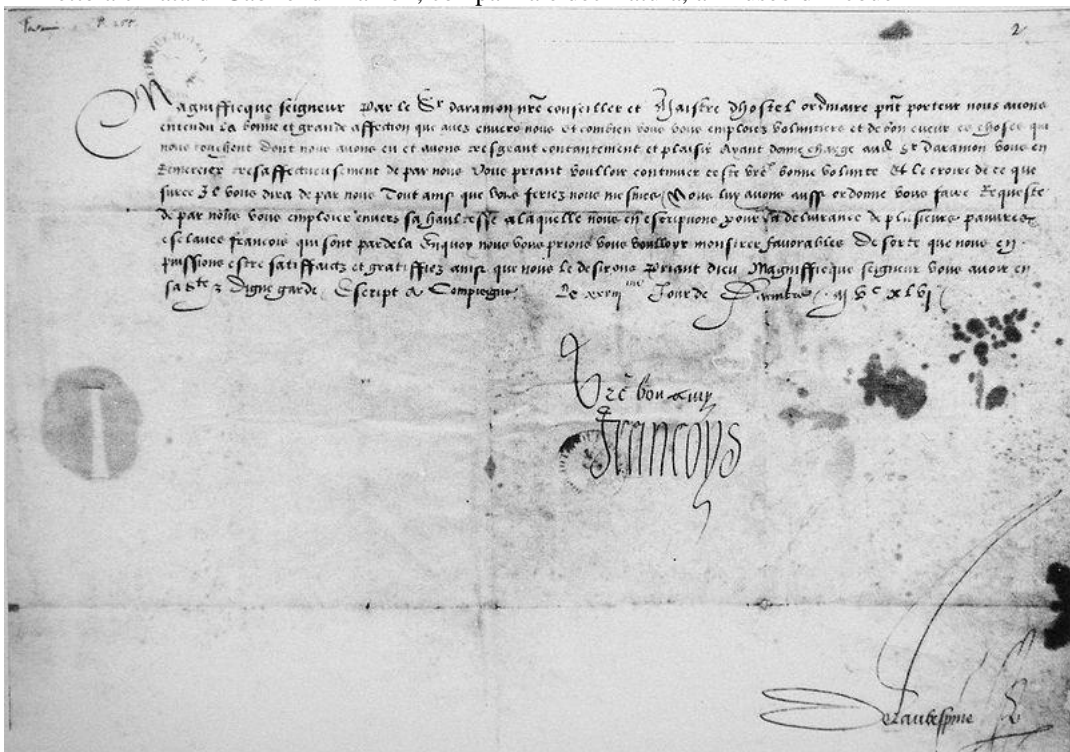 2
Magnifficque seigneur Par le Sr daramon nre conseiller et Maistre dhostel ordinaire pnt porteur nous avons
entendu la bonne et grande affection que avez envers nous et combien vous vous emploiez voluntiers et de bon cueur es choses qui
nous touchent dont nous avons eu et avons tresgrant contantement et plaisir Ayant donne charge aud Sr daramon vous en
Remercier tresaffectueusement de par nous Vous priant voulloir continuer ceste vre bonne volunte Et le croire de ce que
surce Il vous dira de par nous Tout ainsi que vous feriez nous mesmes Nous luy avons aussi ordonne vous faire Requeste
de par nous vous emploier envers sa haultesse a laquelle nous en escripvons pour la delivrance de plusieurs pauvres
esclaves francois qui sont pardela Enquoy nous vous prions vous voulloyr monstrer favorables De sorte que nous en
puissions estre satisffaictz et gratiffiez ainsi que nous le desirons Priant dieu Magnifficque seigneur vous avoir en
sa ste & digne garde Escript a Compiegne Le Jour de M Vc xlvi
Vre bon amy
Francoys
Delaubespine